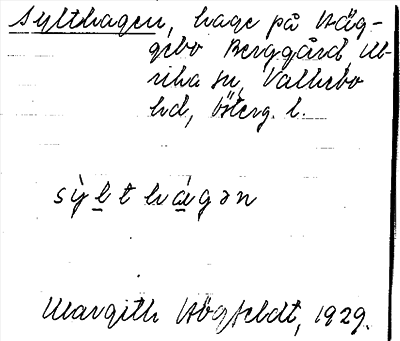 Sylthagen, hage på Häg-
gebo Berggård, Ulf
rika sn, Valkebo
hd, Österg. l.
sỳlthágən
Margith Högfeldt, 1929.